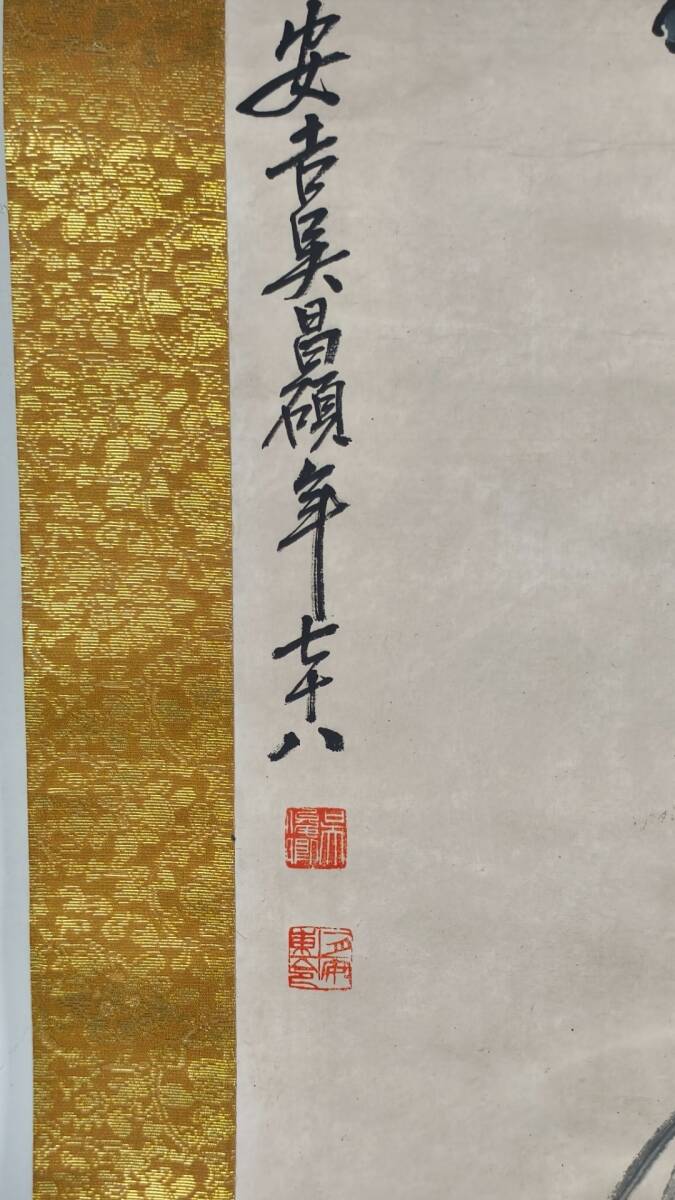 安吉吳昌碩年七十八